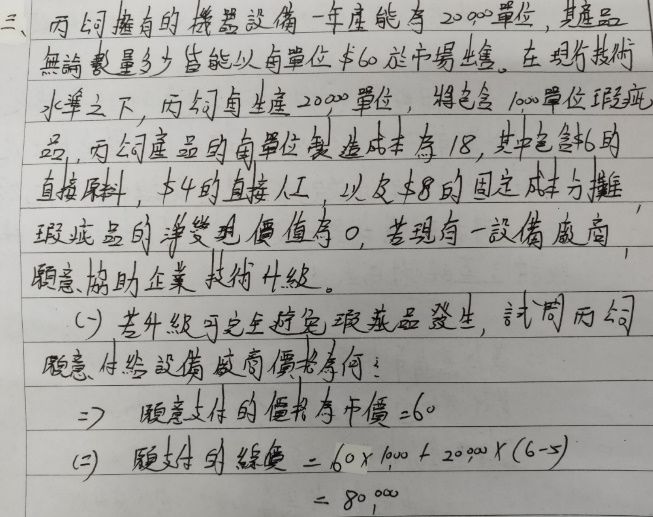 三、丙公司擁有的機器設備一年產能為20,000單位,其產品
無論數量多少皆能以每單位$60於市場出售。在現行技術
水準之下,丙公司每生產20,000單位,將包含1,000單位瑕疵
品,丙公司產品的每單位製造成本為18,其中包含$6的
直接原料,$4的直接人工,以及$8的固定成本分攤,
瑕疵品的淨變現價值為0,若現有一設備廠商,
願意協助企業技術升級。
(一)若升級可完全避免瑕疵品發生,試問丙公司
願意付給設備廠商價格為何?
=> 願意支付的價格為市價=60
(二) 願支付的總價 = 60×1,000 + 20,000×(6-5)
= 80,000